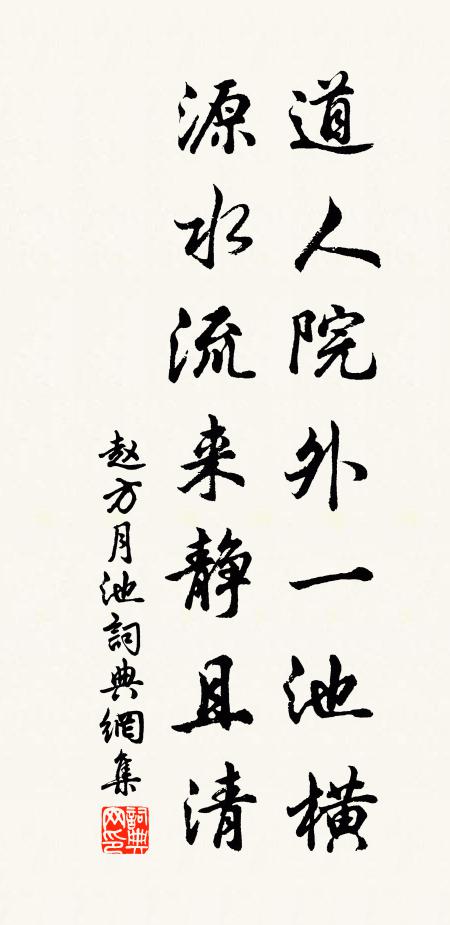 道人院外一池横
源水流来静且清
赵方月池詞典網集
詞典网印